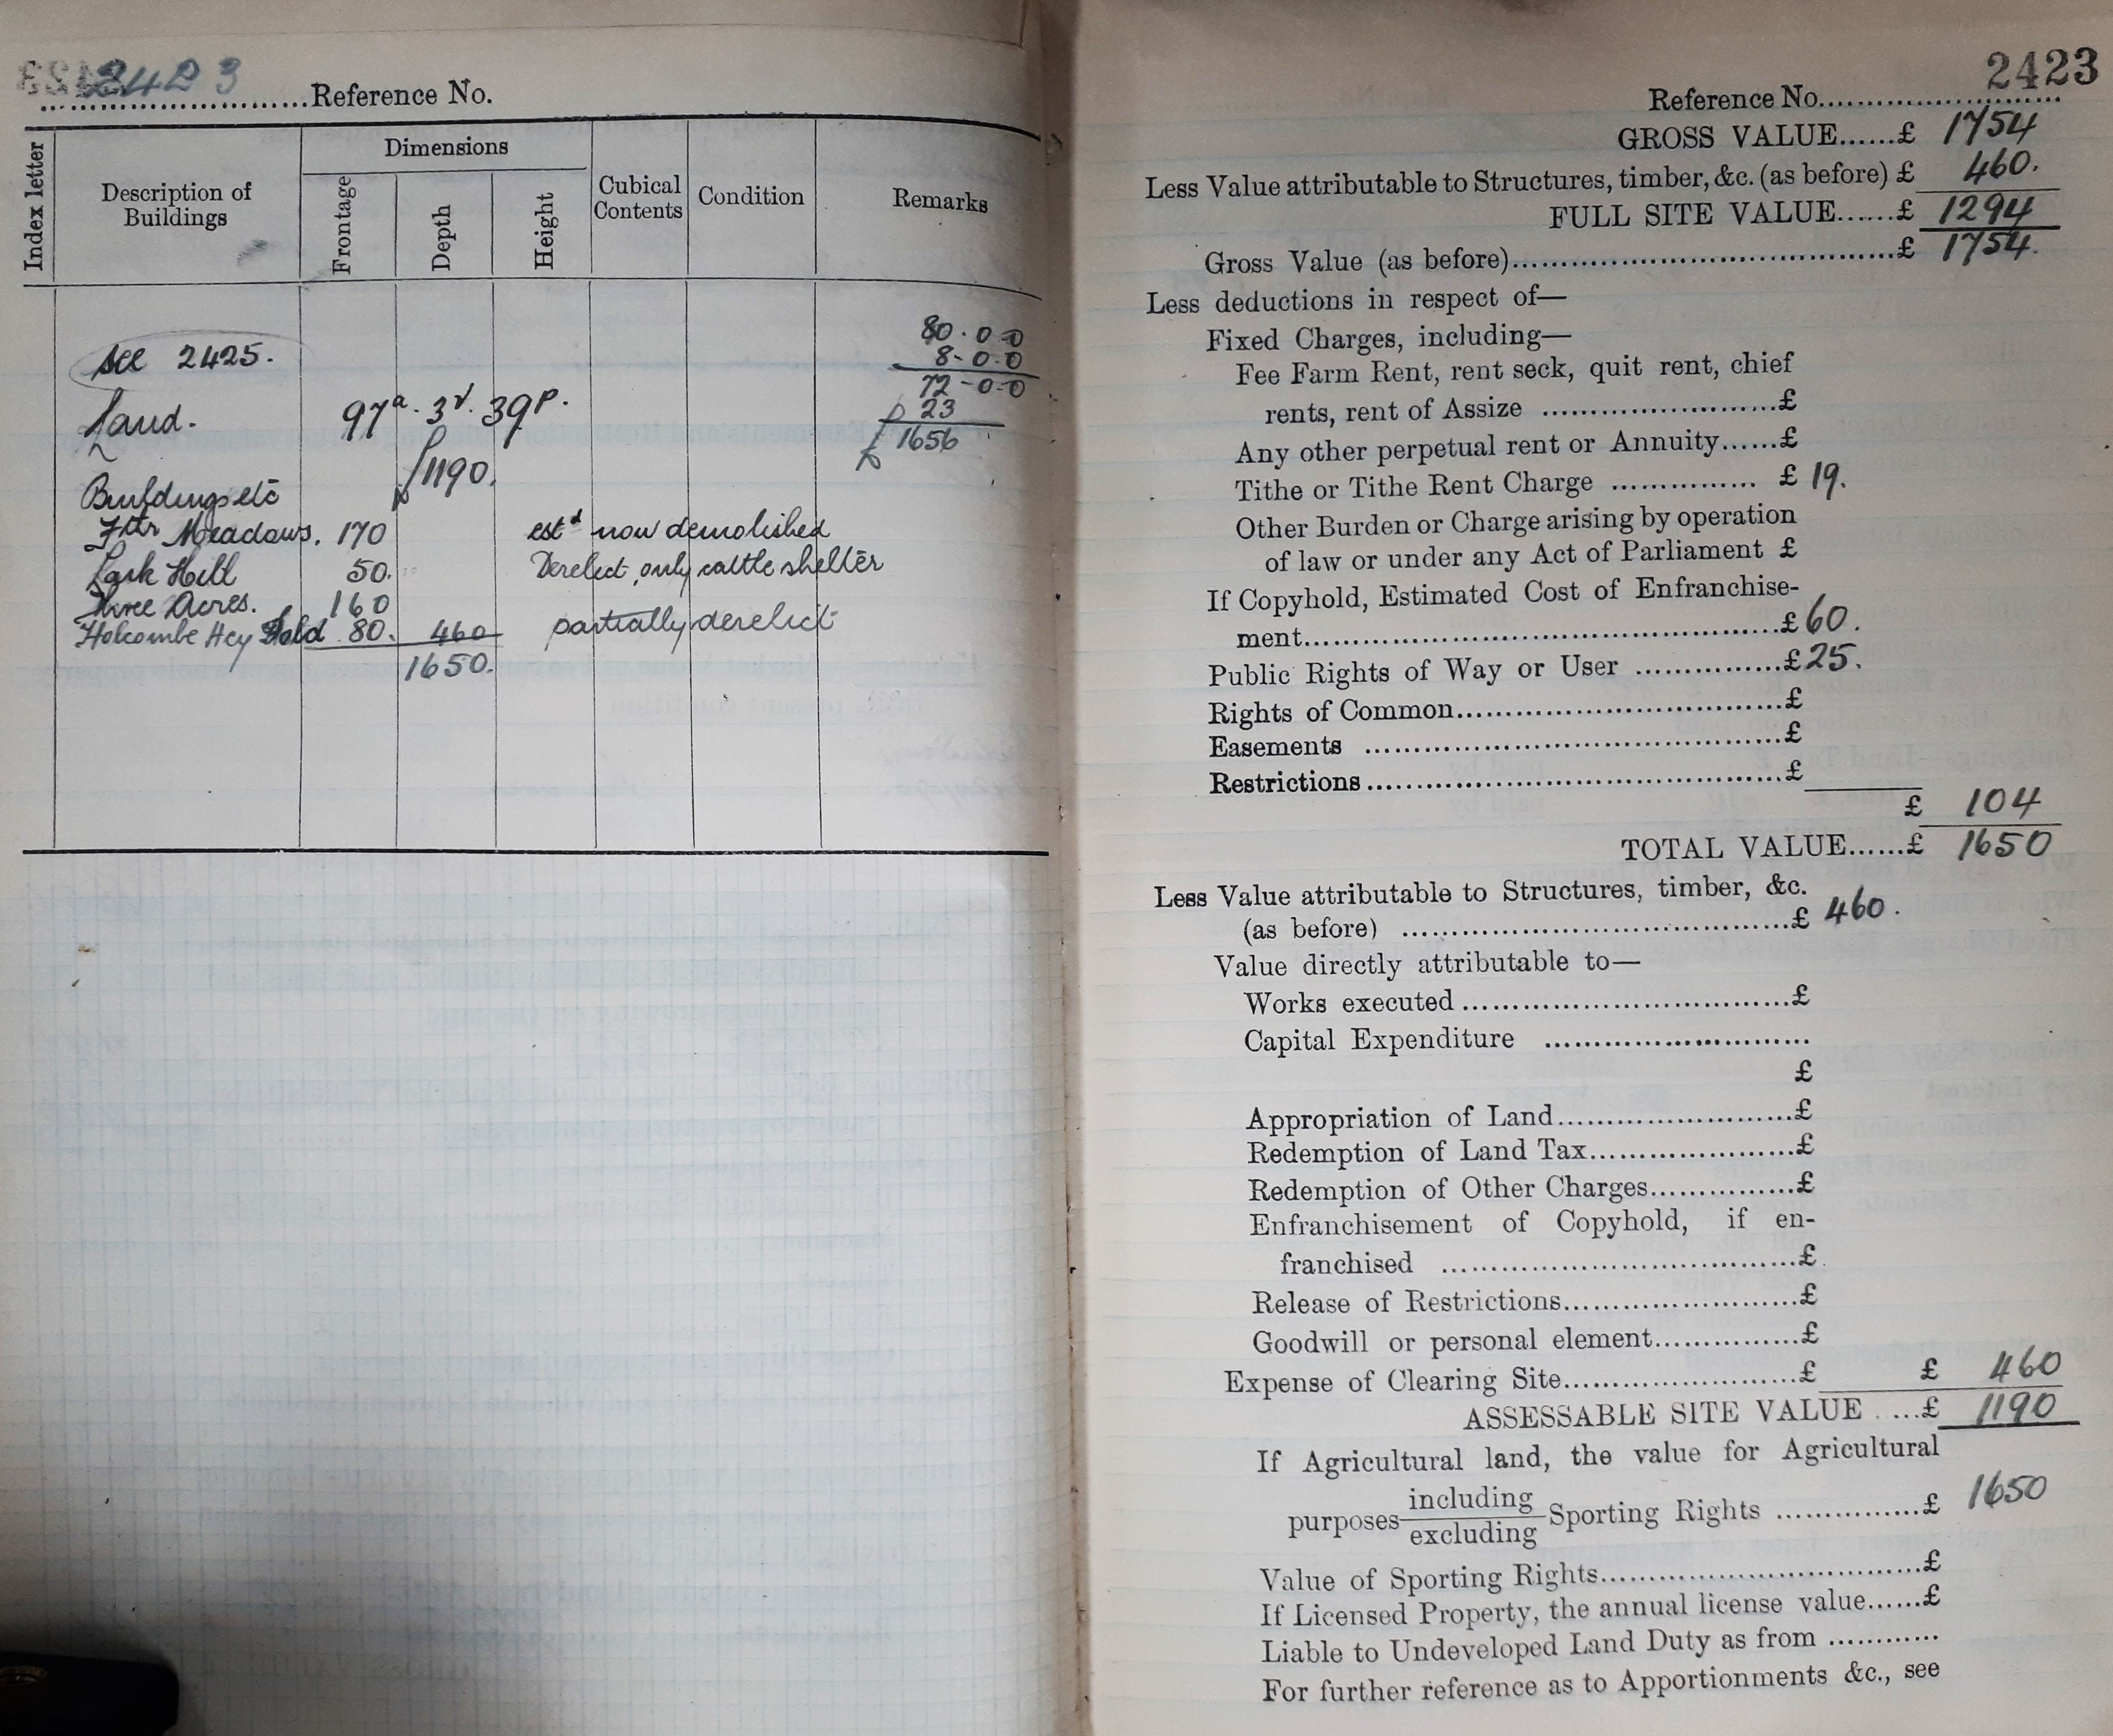 2423
Reference No.
Index letter
Description of Buildings
Dimensions
Frontage
Depth
Height
Cubical Contents
Condition
Remarks
80 . 0 . 0
8 - 0 . 0
72 - 0 - 0
23
£ 1656
see 2425.
Land. 97a. 3r. 39p.
£1190.
Buildings etc
Fthr Meadows. 170 estd now demolished
Lark Hill 50. Derelect, only cattle shelter
Three Acres. 160
Holcombe Hey Fold 80. 460 partially derelict
1650.
2423
Reference No.
GROSS VALUE......£ 1754
Less Value attributable to Structures, timber, &c. (as before) £ 460.
FULL SITE VALUE......£ 1294
Gross Value (as before)......£ 1754.
Less deductions in respect of—
Fixed Charges, including—
Fee Farm Rent, rent seck, quit rent, chief
rents, rent of Assize ......£
Any other perpetual rent or Annuity......£
Tithe or Tithe Rent Charge ...... £ 19.
Other Burden or Charge arising by operation
of law or under any Act of Parliament £
If Copyhold, Estimated Cost of Enfranchise-
ment......£ 60.
Public Rights of Way or User ......£ 25.
Rights of Common......£
Easements ......£
Restrictions......£
£ 104
TOTAL VALUE......£ 1650
Less Value attributable to Structures, timber, &c.
(as before) ......£ 460.
Value directly attributable to—
Works executed......£
Capital Expenditure ......
£
Appropriation of Land......£
Redemption of Land Tax......£
Redemption of Other Charges......£
Enfranchisement of Copyhold, if en-
franchised ......£
Release of Restrictions......£
Goodwill or personal element......£
Expense of Clearing Site......£ £ 460
ASSESSABLE SITE VALUE ....£ 1190
If Agricultural land, the value for Agricultural
purposes including
excluding Sporting Rights ......£ 1650
Value of Sporting Rights......£
If Licensed Property, the annual license value......£
Liable to Undeveloped Land Duty as from ......
For further reference as to Apportionments &c., see